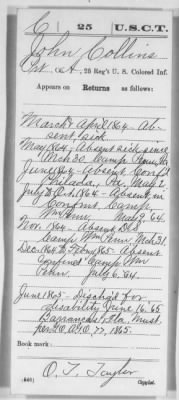 C | 25 | U.S.C.T.
John Collins
Pvt, Co. A, 25 Reg't U. S. Colored Inf.
Appears on
Returns as follows:
March & April 1864 - Ab-
sent sick
May 1864 - Absent sick since
Mch 30 Camp
June 1864 - Absent Conf'd
Philada, Pa. May 2
July & 1864 - Absent in
Confmt. Camp
Wm Penn, May 9, 64.
Nov. 1864 - Absent D.S.
Camp Wm Penn, Mch 31.
Dec 1864 to 1865 - Absent
Confined Camp Wm
Penn July 6, 64.
June 1865 - Disch'd for
disability June 16. 65
Barrancas Fla. Must.
per G.O. 77, 1865.
Book mark:
O. T. Taylor
(546) Copyist.